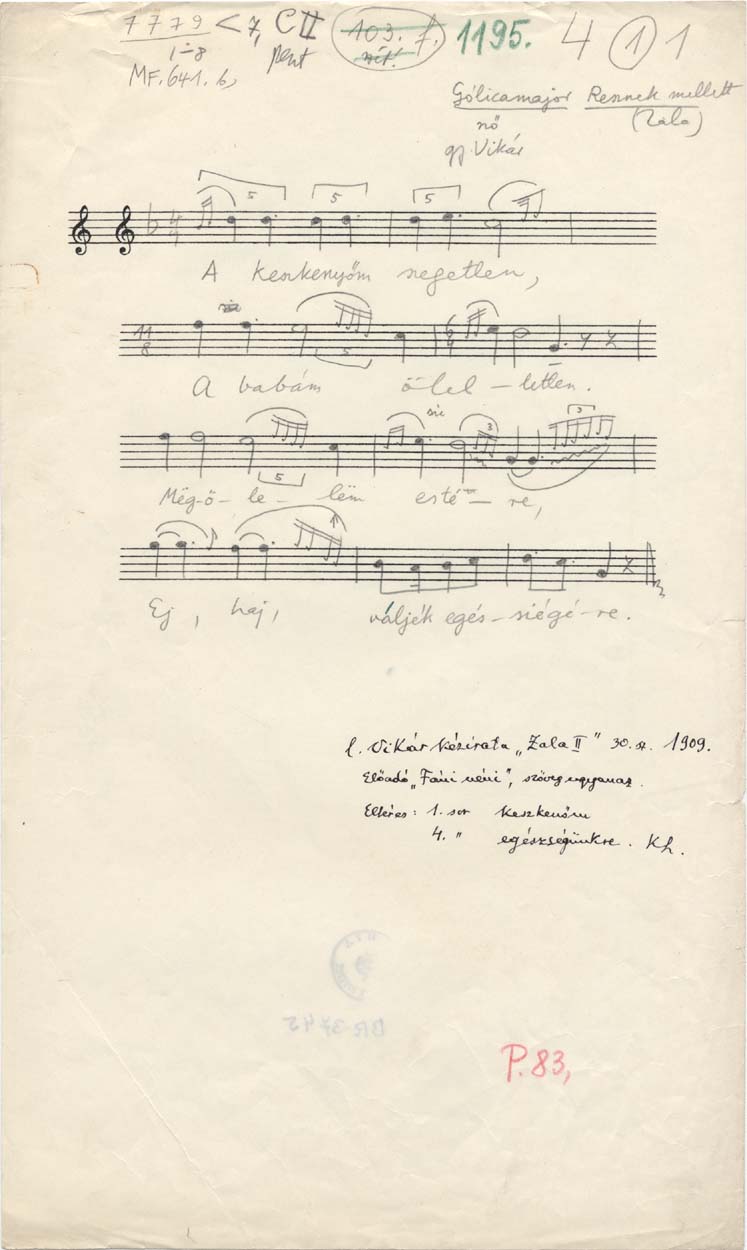 7 7 7 9 <7, C II 103. f. 1195. 4 1 1
1-8 pent
MF. 641. b,
Gólicamajor Rennek mellett
nő (Zala)
gy. Vikár
5 5 5
4
4
A keszkenyőm szegetlen,
11
8
5
6
4
A babám ő-lel-letlen.
sic
5 3 3
Még-ö-le-lëm esté-re,
Ej, haj, váljék egés-siégé-re.
l. Vikár kézirata „Zala II" 30. sz. 1909.
Előadó „Fáni néni", szöveg ugyanaz.
Eltérés: 1. sor keszkenőm
4. " egészségünkre. Kh.
BR 3745
P. 83,